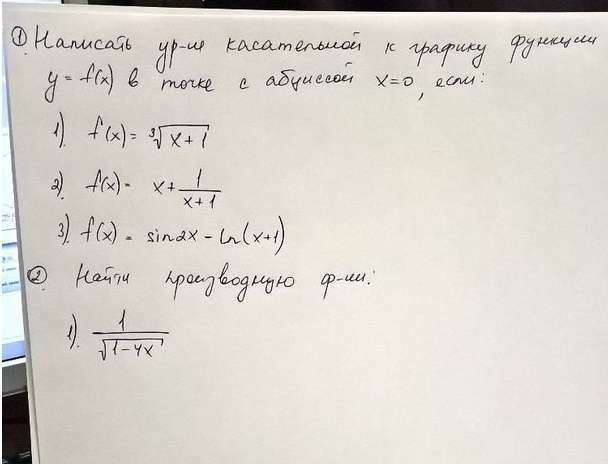 ① Написать ур-ие касательной к графику функции
y = f(x) в точке с абциссой x=0, если:
1). f(x) = ∛(x+1)
2). f(x) = x + 1/(x+1)
3). f(x) = sin2x - ln(x+1)
② Найти производную ф-ии:
1). 1/√(1-4x)